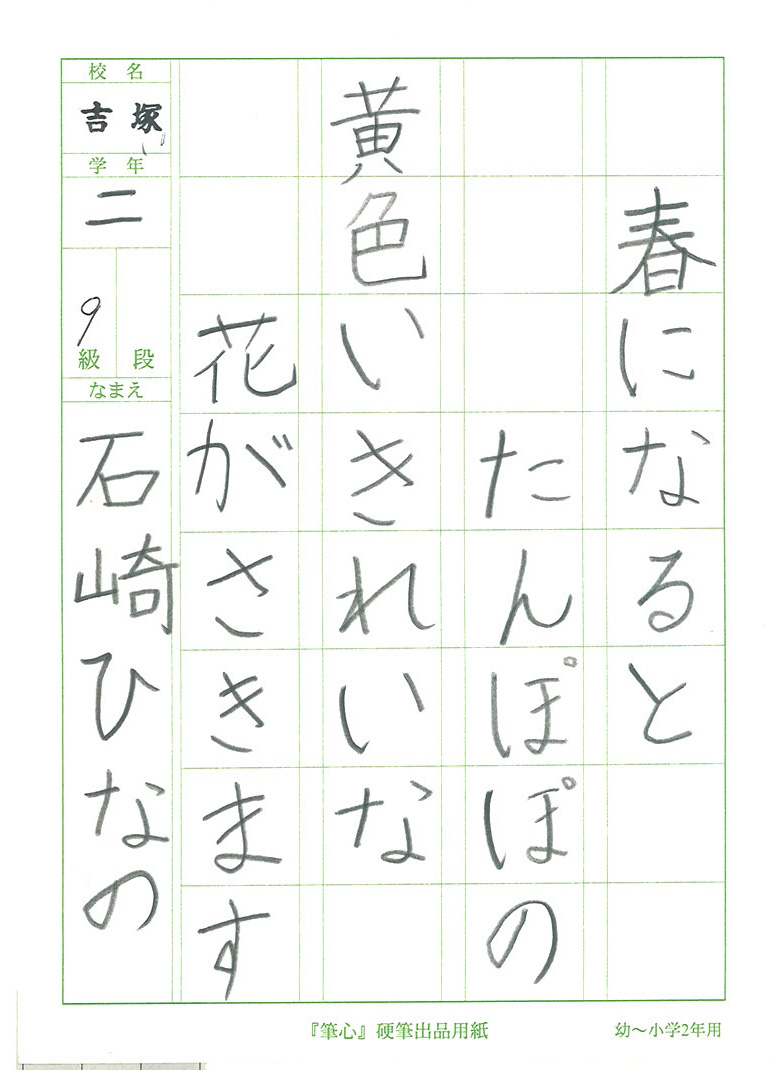 春になると
たんぽぽの
黄色いきれいな
花がさきます
校名
吉塚
学年
二
9
級 段
なまえ
石崎ひなの
『筆心』硬筆出品用紙
幼〜小学2年用